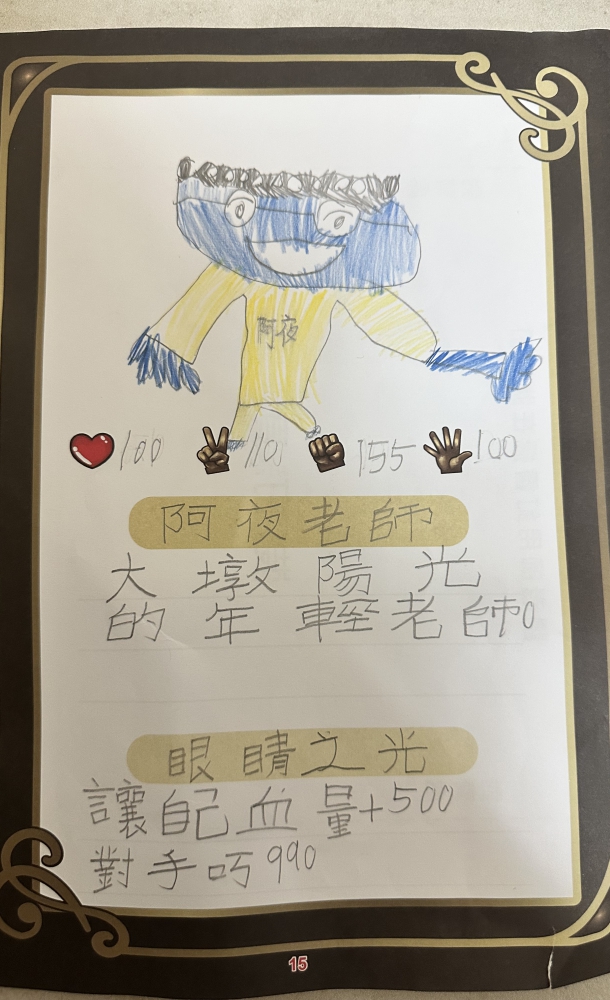 阿夜
100 110 155 100
阿夜老師
大墩陽光
的年輕老師。
眼睛之光
讓自己血量+500
對手丐990
15